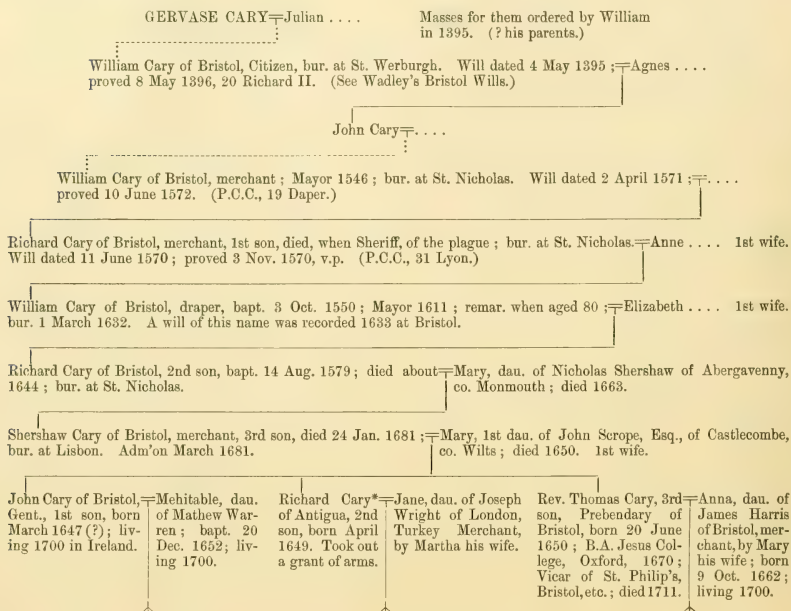 GERVASE CARY=Julian . . . .
Masses for them ordered by William
in 1395. (? his parents.)
William Cary of Bristol, Citizen, bur. at St. Werburgh. Will dated 4 May 1395 ;=Agnes . . . .
proved 8 May 1396, 20 Richard II. (See Wadley's Bristol Wills.)
John Cary=. . . .
William Cary of Bristol, merchant ; Mayor 1546 ; bur. at St. Nicholas. Will dated 2 April 1571 ;=. . . .
proved 10 June 1572. (P.C.C., 19 Daper.)
Richard Cary of Bristol, merchant, 1st son, died, when Sheriff, of the plague ; bur. at St. Nicholas.=Anne . . . . 1st wife.
Will dated 11 June 1570 ; proved 3 Nov. 1570, v.p. (P.C.C., 31 Lyon.)
William Cary of Bristol, draper, bapt. 3 Oct. 1550 ; Mayor 1611 ; remar. when aged 80 ;=Elizabeth . . . . 1st wife.
bur. 1 March 1632. A will of this name was recorded 1633 at Bristol.
Richard Cary of Bristol, 2nd son, bapt. 14 Aug. 1579 ; died about=Mary, dau. of Nicholas Shershaw of Abergavenny,
1644 ; bur. at St. Nicholas.
co. Monmouth ; died 1663.
Shershaw Cary of Bristol, merchant, 3rd son, died 24 Jan. 1681 ;=Mary, 1st dau. of John Scrope, Esq., of Castlecombe,
bur. at Lisbon. Adm'on March 1681.
co. Wilts ; died 1650. 1st wife.
John Cary of Bristol,=
Gent., 1st son, born
March 1647 (?) ; liv-
ing 1700 in Ireland.
Mehitable, dau.
of Mathew War-
ren ; bapt. 20
Dec. 1652; liv-
ing 1700.
Richard Cary*=
of Antigua, 2nd
son, born April
1649. Took out
a grant of arms.
Jane, dau. of Joseph
Wright of London,
Turkey Merchant,
by Martha his wife.
Rev. Thomas Cary, 3rd=
son, Prebendary of
Bristol, born 20 June
1650 ; B.A. Jesus Col-
lege, Oxford, 1670 ;
Vicar of St. Philip's,
Bristol, etc. ; died 1711.
Anna, dau. of
James Harris
of Bristol, mer-
chant, by Mary
his wife ; born
9 Oct. 1662 ;
living 1700.